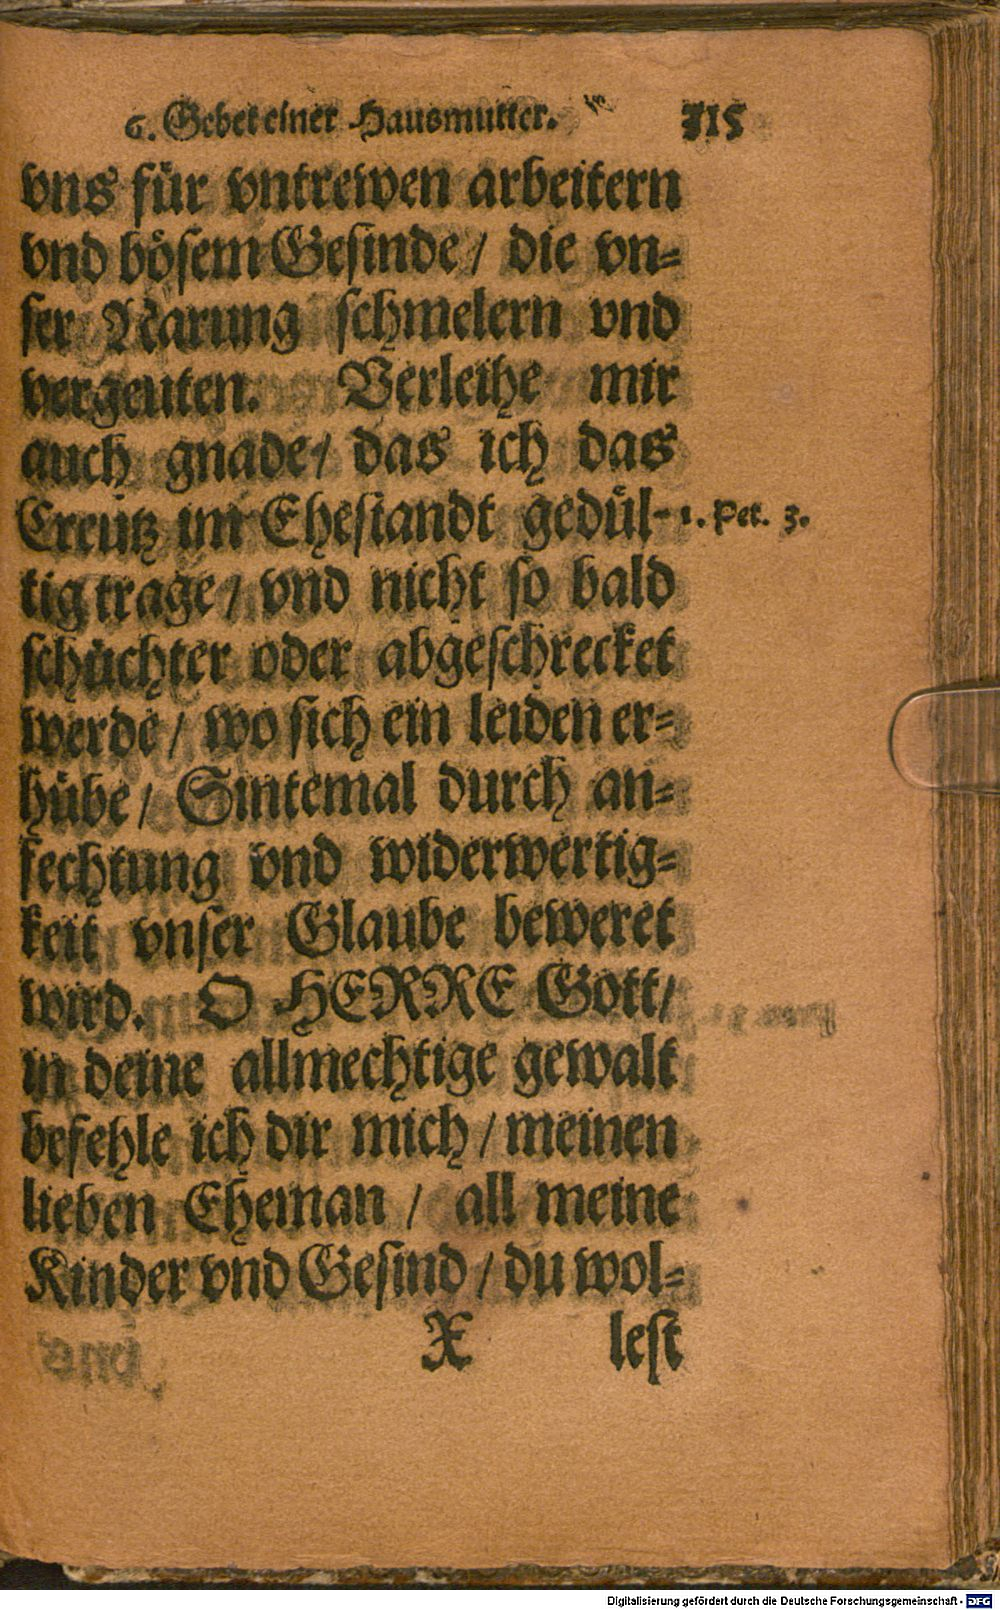 6. Gebet einer Hausmutter. 315
vns für vntrewen arbeitern
vnd bösem Gesinde / die vn=
ser Narung schmelern vnd
vergeuten. Verleihe mir
auch gnade / das ich das
Creutz im Ehestandt gedül-
1. Pet. 3.
tig trage / vnd nicht so bald
schüchter oder abgeschrecket
werde / wo sich ein leiden er=
hübe / Sintemal durch an=
fechtung vnd widerwertig=
keit vnser Glaube beweret
wird. O HERRE Gott /
in deine allmechtige gewalt
befehle ich dir mich / meinen
lieben Eheman / all meine
Kinder vnd Gesind / du wol=
X lest
Digitalisierung gefördert durch die Deutsche Forschungsgemeinschaft - DFG